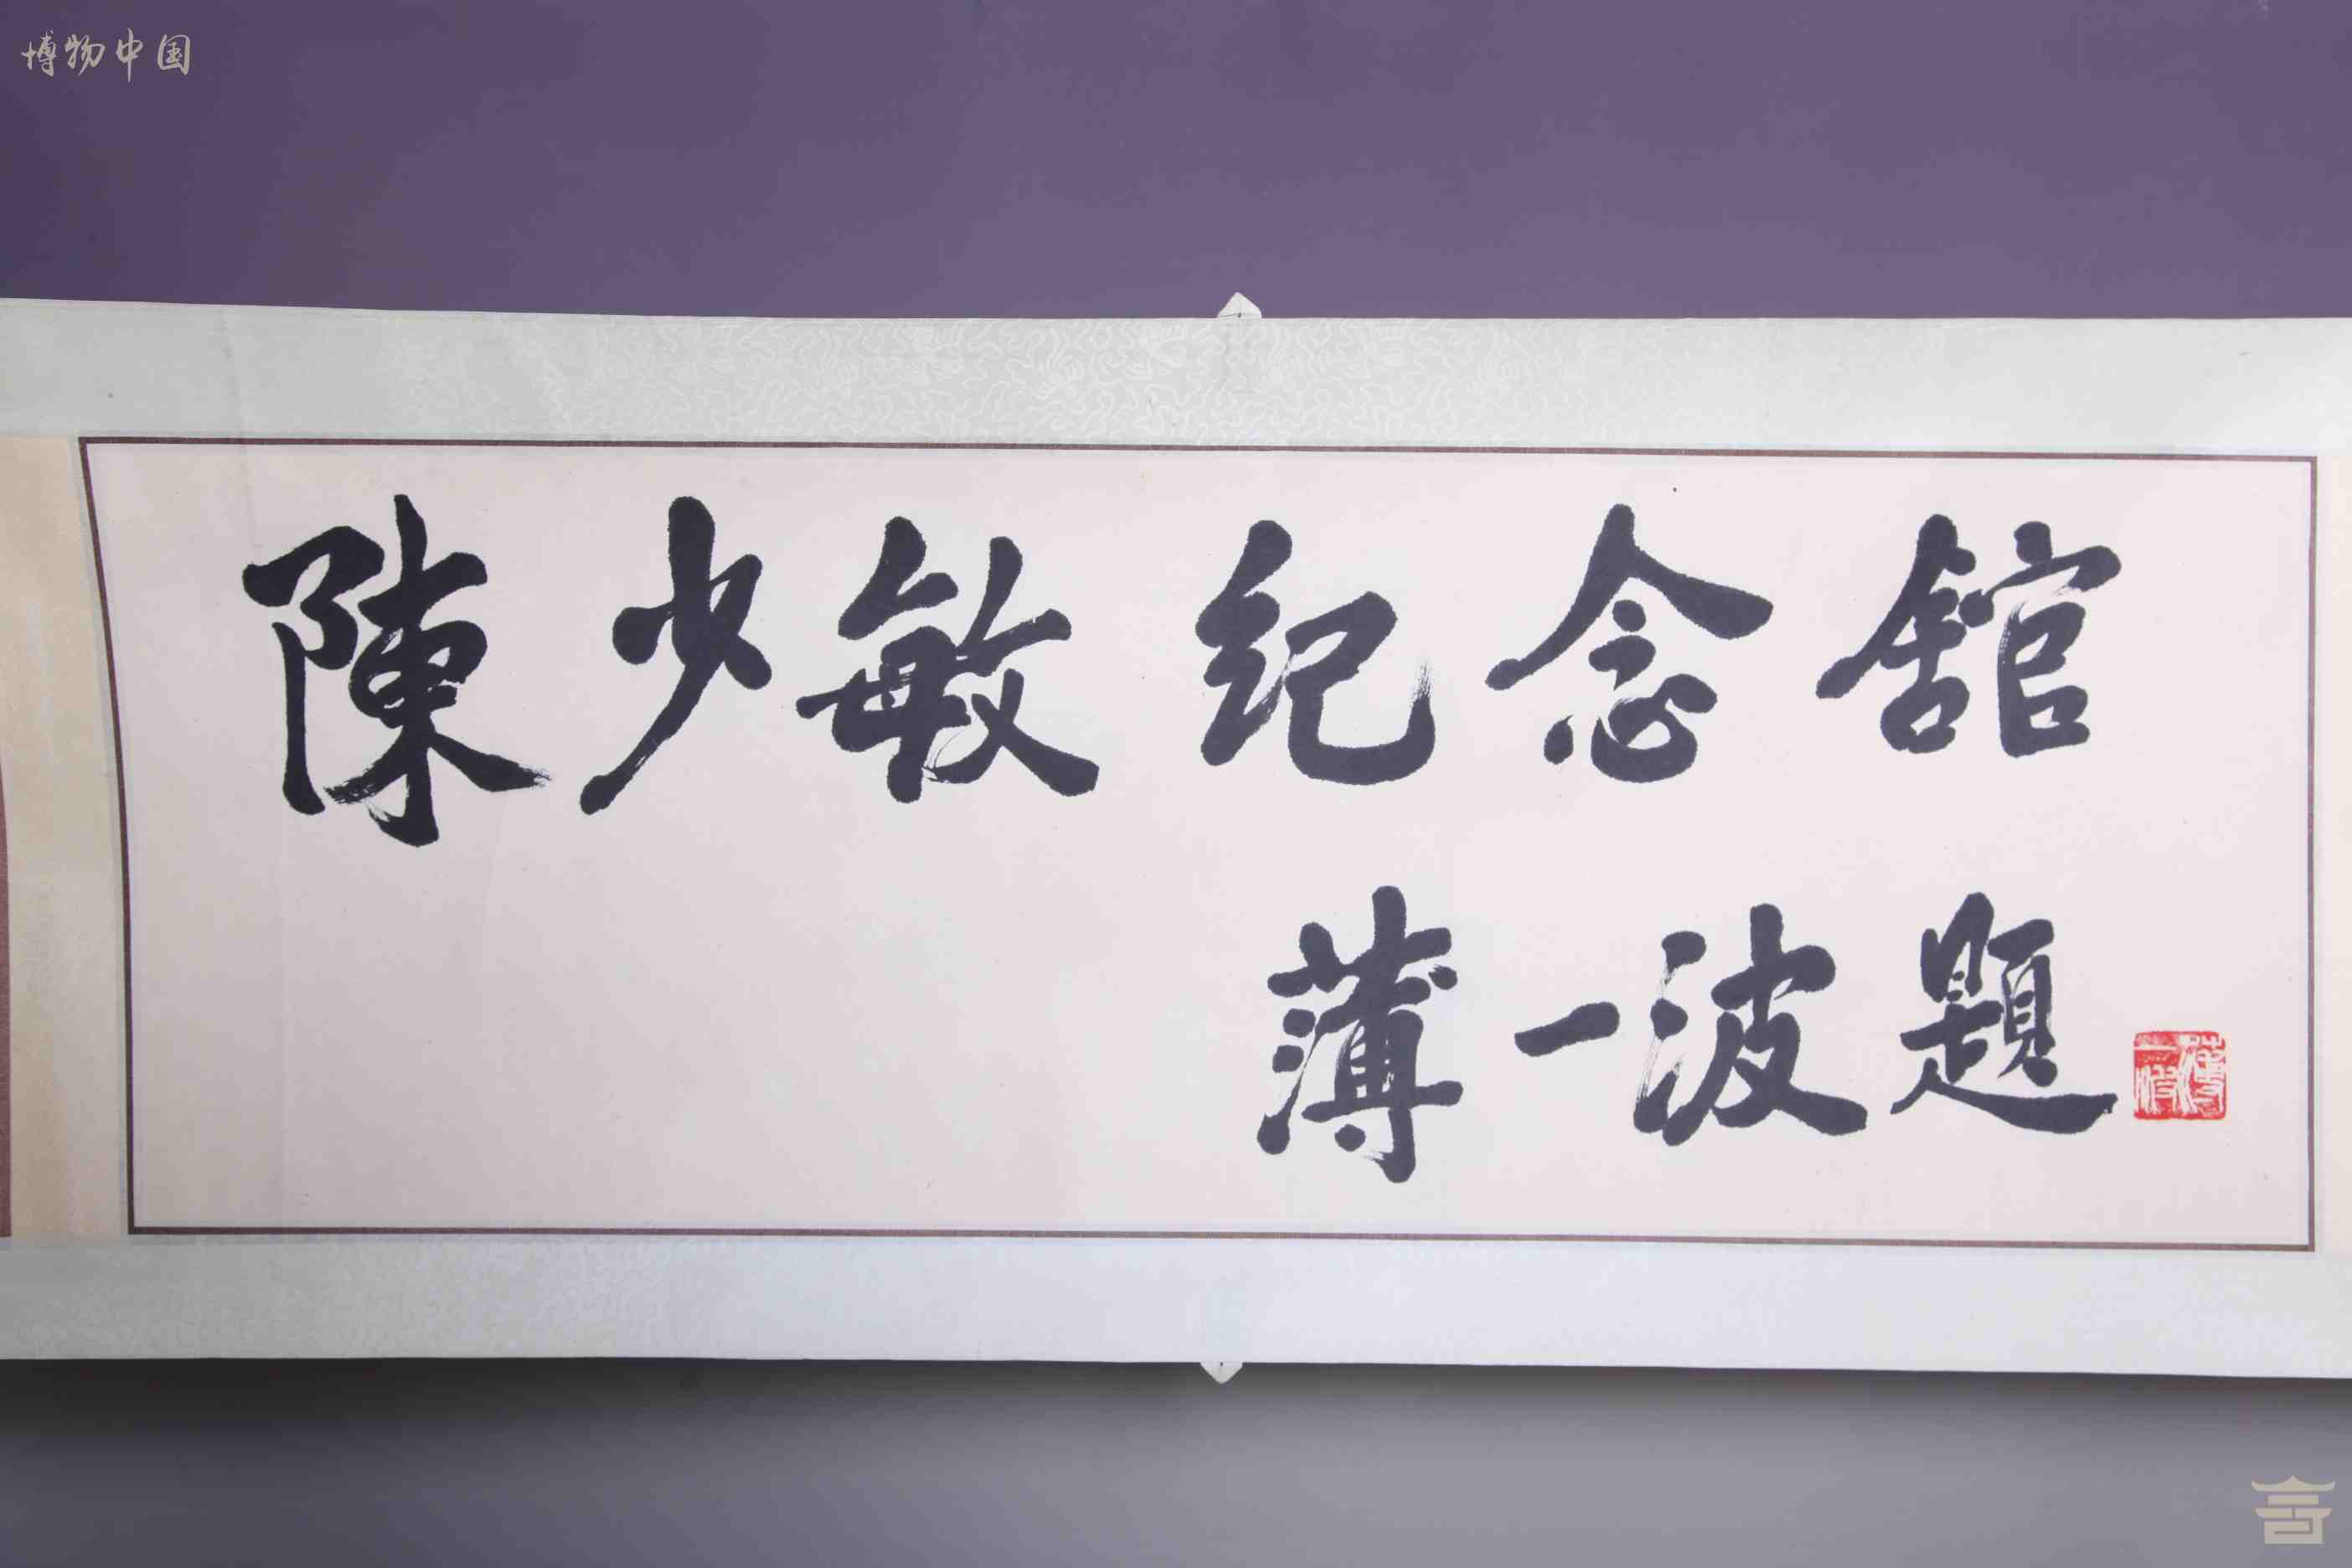 博物中国
陳少敏纪念舘
薄一波题
薄一波